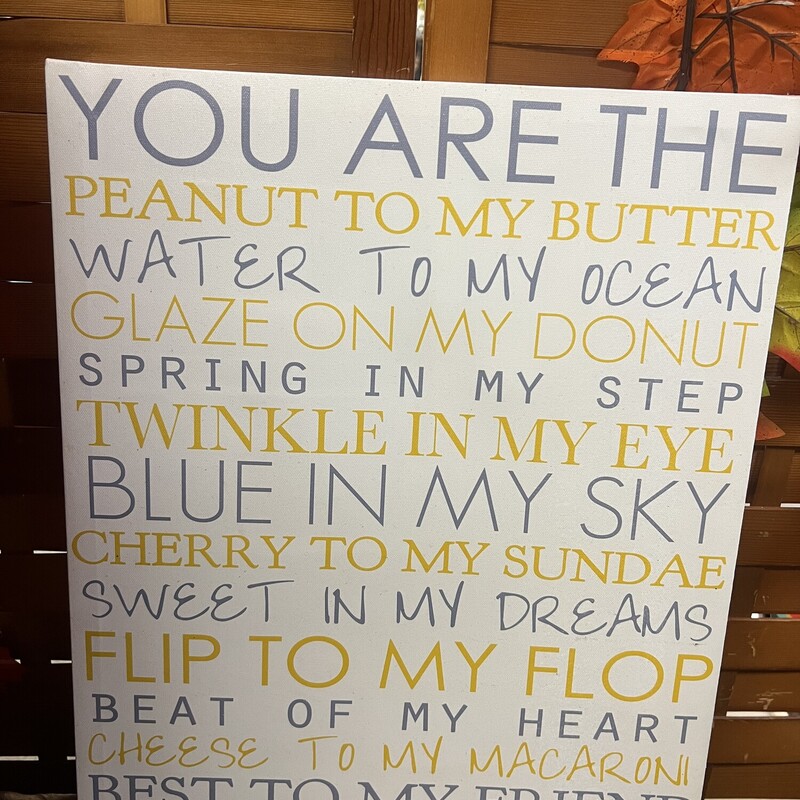 YOU ARE THE
PEANUT TO MY BUTTER
WATER TO MY OCEAN
GLAZE ON MY DONUT
SPRING IN MY STEP
TWINKLE IN MY EYE
BLUE IN MY SKY
CHERRY TO MY SUNDAE
SWEET IN MY DREAMS
FLIP TO MY FLOP
BEAT OF MY HEART
CHEESE TO MY MACARONI
BEST TO MY FRIEND